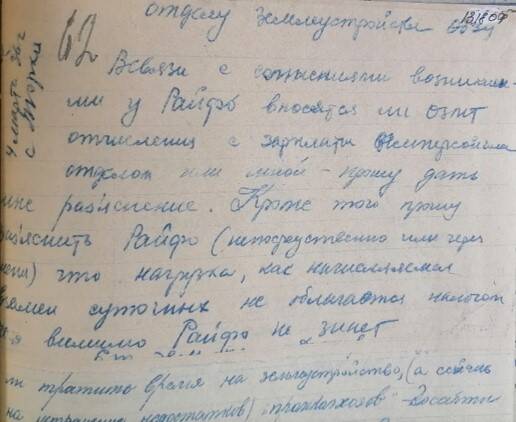 отделу землеустройства
131806
62
4 марта 36 г
с
Всвязи с сомнениями возникши-
ми у Райфо вносятся ли озит
отчисления с зарплаты
отделом или мной - прошу дать
мне раз'яснение. Кроме того прошу
раз'яснить Райфо (непосредственно или через
меня) что нагрузка, как начисляемая
взамен суточных не облагается налогом
видимо Райфо не знает
ли тратить время на землеустройство, (а сейчас
на устранение недостатков)